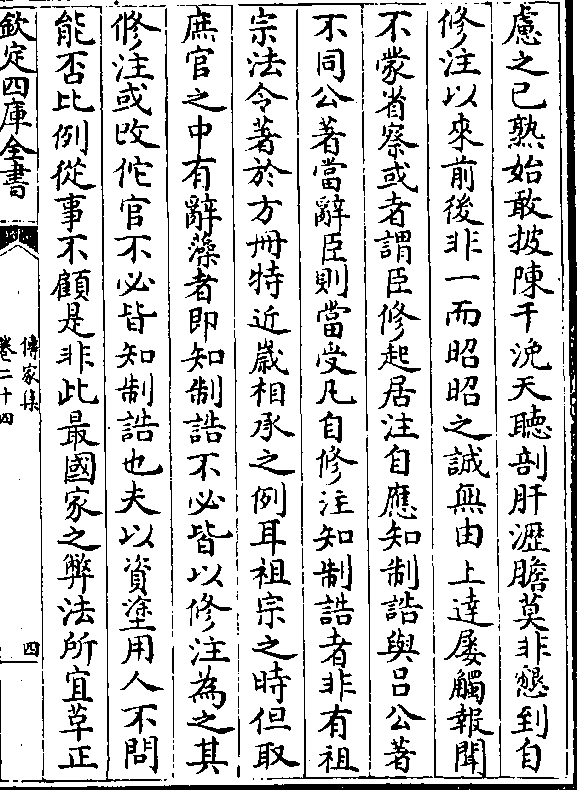 慮之已熟始敢披陳干浼天聽剖肝瀝膽莫非懇到自
修注以來前後非一而昭昭之誠無由上達屢觸報聞
不蒙省察或者謂臣修起居注自應知制誥與吕公著
不同公著當辭臣則當受凡自修注知制誥者非有祖
宗法令著於方冊特近歲相承之例耳祖宗之時但取
庶官之中有辭藻者即知制誥不必皆以修注為之其
修注或改佗官不必皆知制誥也夫以資塗用人不問
能否比例從事不顧是非此最國家之弊法所宜草正
欽定四庫全書
傳家集
卷二十四
四